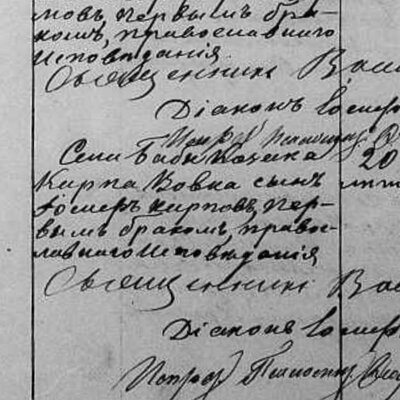 мовъ, первымъ бра-
комъ, православнаго
исповѣданія.
Священникъ Васи
Діаконъ Іосиф
Села Бабы Козака 20
Карпа Вовка сынъ лѣтъ
Іосифъ Карповъ, пер-
вымъ бракомъ, право-
славнаго исповѣданія
Священникъ Вас
Діаконъ Іосиф